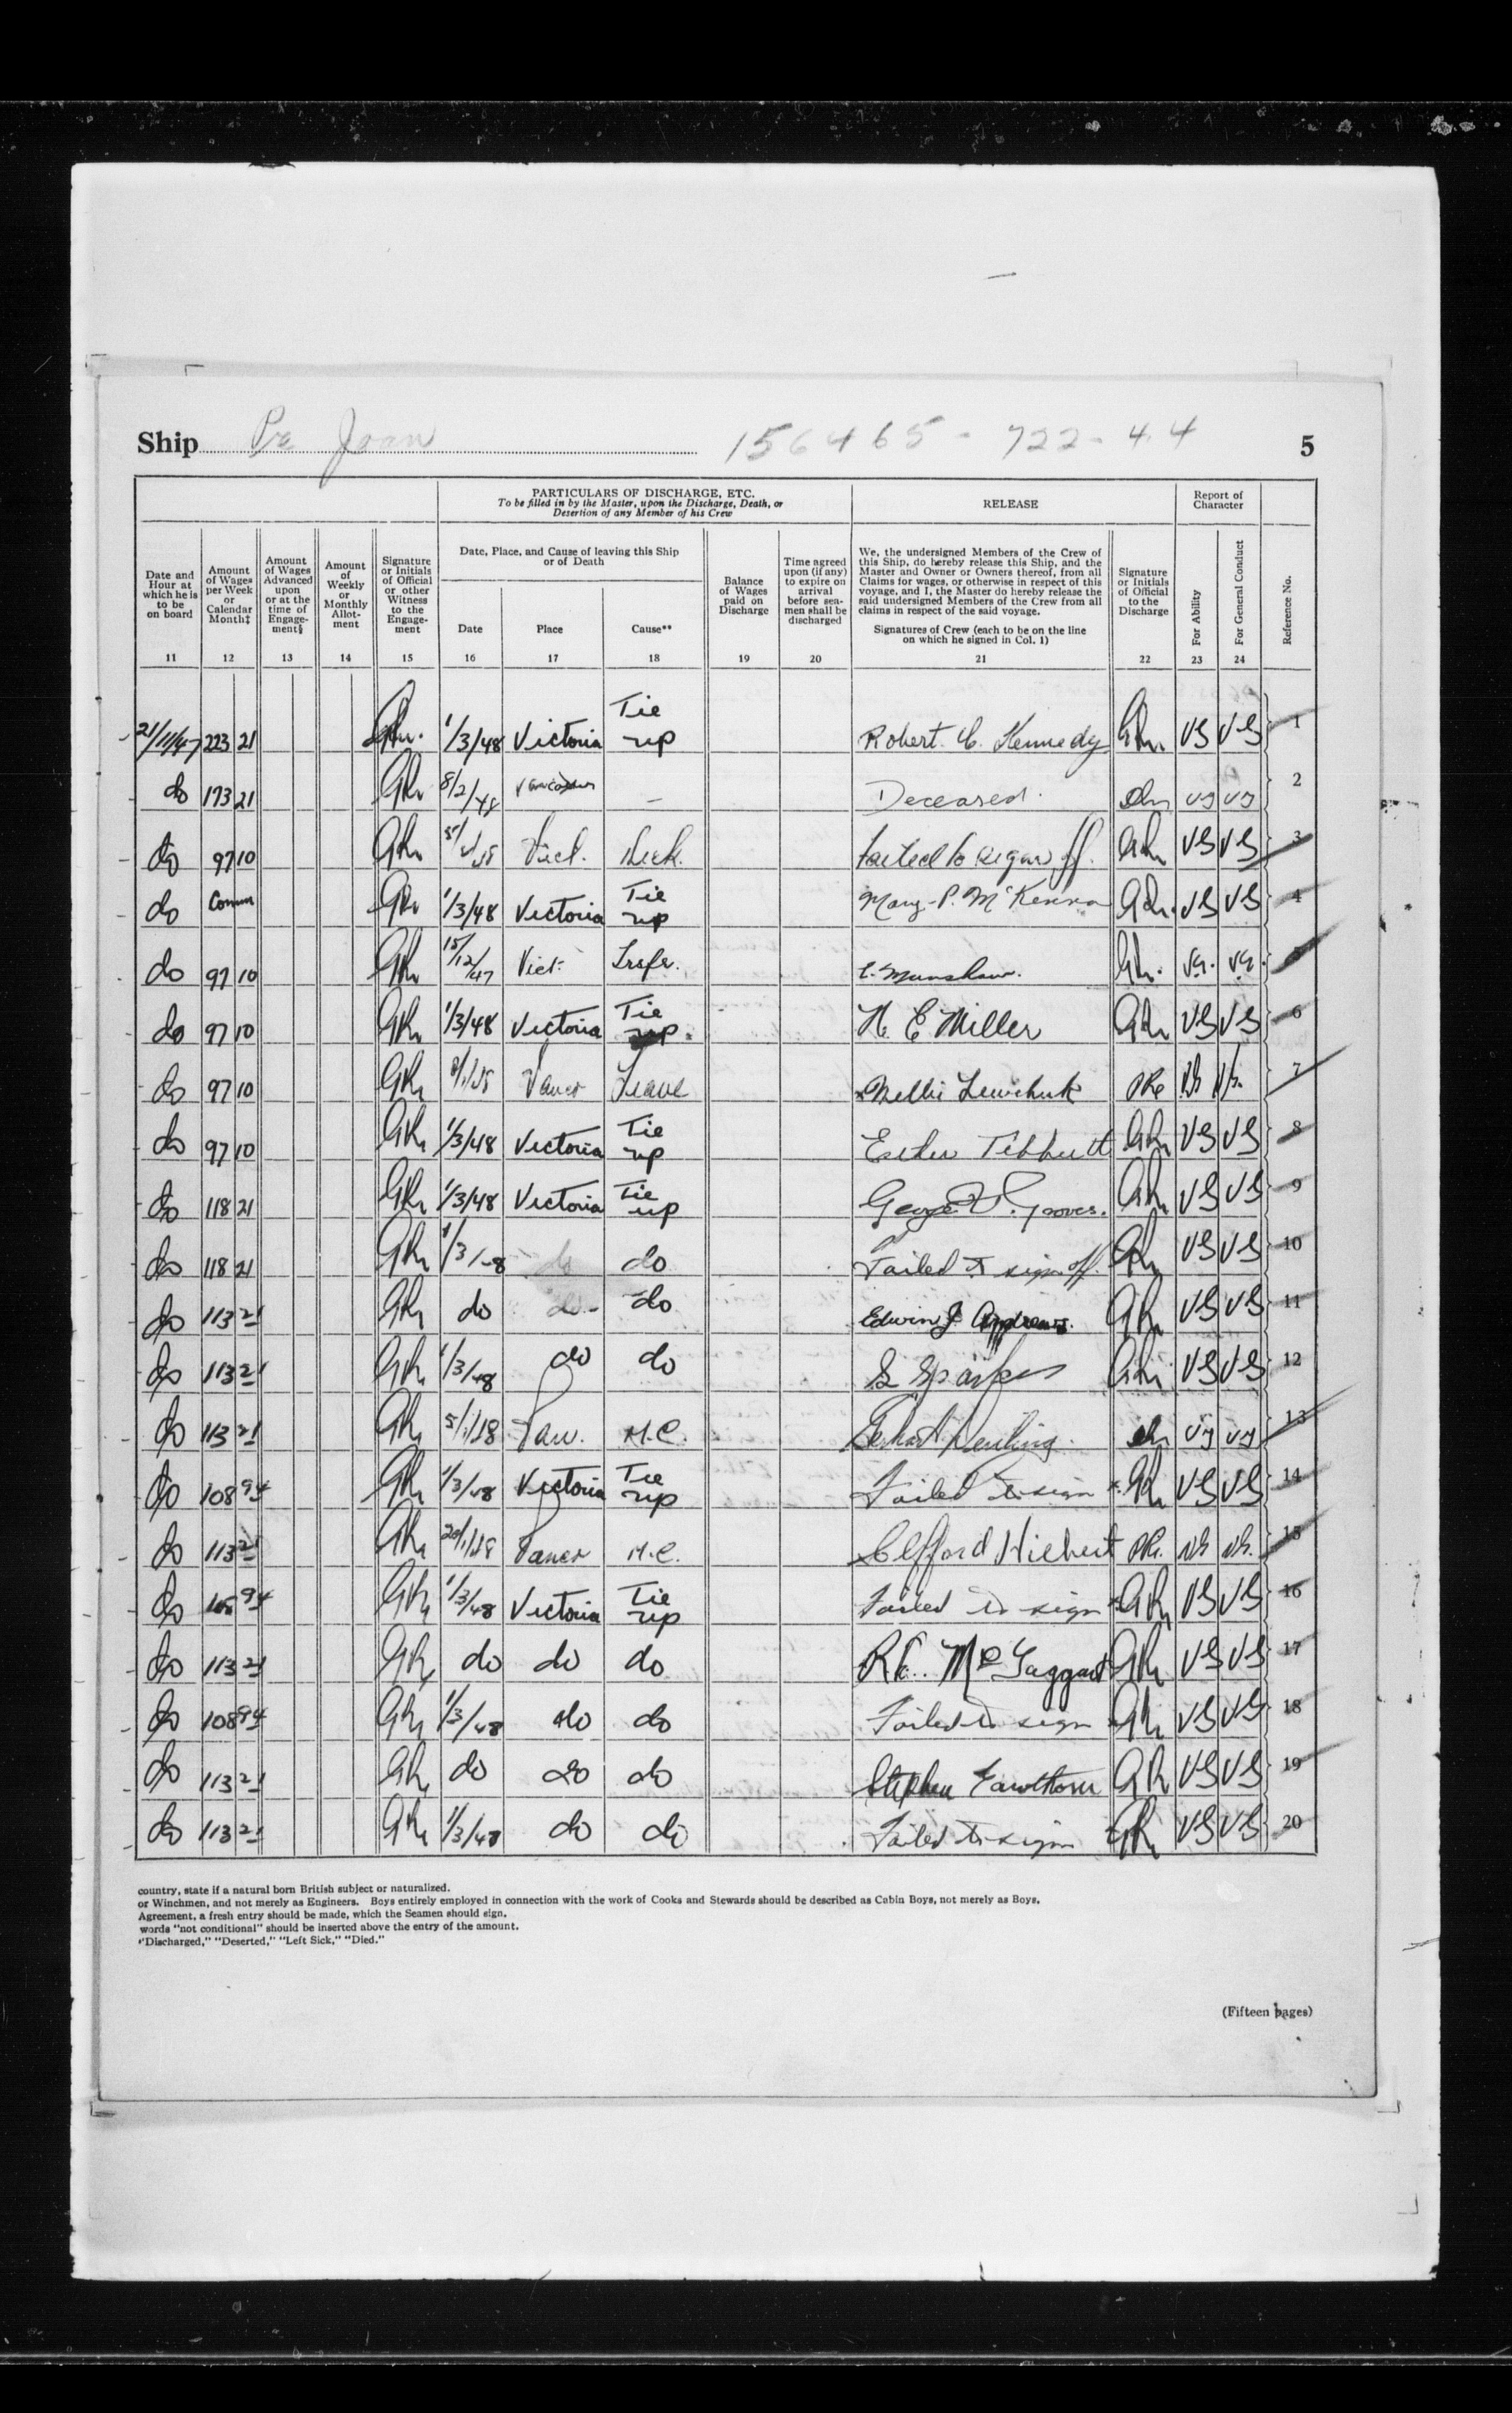 Ship Pr Joan 156465 - 722 - 4.4 5
PARTICULARS OF DISCHARGE, ETC.
To be filled in by the Master, upon the Discharge, Death, or
Desertion of any Member of his Crew
RELEASE
Report of
Character
Date and
Hour at
which he is
to be
on board
Amount
of Wages
per Week
or
Calendar
Month‡
Amount
of Wages
Advanced
upon
or at the
time of
Engage-
ment§
Amount
of
Weekly
or
Monthly
Allot-
ment
Signature
or Initials
of Official
or other
Witness
to the
Engage-
ment
Date, Place, and Cause of leaving this Ship
or of Death
Date Place Cause**
Balance
of Wages
paid on
Discharge
Time agreed
upon (if any)
to expire on
arrival
before sea-
men shall be
discharged
We, the undersigned Members of the Crew of
this Ship, do hereby release this Ship, and the
Master and Owner or Owners thereof, from all
Claims for wages, or otherwise in respect of this
voyage, and I, the Master do hereby release the
said undersigned Members of the Crew from all
claims in respect of the said voyage.
Signatures of Crew (each to be on the line
on which he signed in Col. 1)
Signature
or Initials
of Official
to the
Discharge
For Ability
For General Conduct
Reference No.
11 12 13 14 15 16 17 18 19 20 21 22 23 24
21/11/47 223 21 1/3/48 Victoria Tie up Robert C. Kennedy VG VG 1
do 173 21 8/2/48 Vancouver — Deceased. vg vg 2
do 97 10 Vict. failed to sign off. VG VG 3
do Comm 1/3/48 Victoria Tie up Mary P. McKenna VG VG 4
do 97 10 15/12/47 Vict. Trsfr. E. Munshaw. VG. VG. 5
do 97 10 1/3/48 Victoria Tie up. N. E. Miller VG VG 6
do 97 10 Vancr Leave Nellie Lewchuk 7
do 97 10 1/3/48 Victoria Tie up Esther Tibbutt VG VG 8
do 118 21 1/3/48 Victoria Tie up George Grooves. VG VG 9
do 118 21 1/3/48 do do Failed to sign off. VG VG 10
do 113 21 do do do Edwin J. Andrews. VG VG 11
do 113 21 1/3/48 do do S Sparkes VG VG 12
do 113 21 5/1/48 Van. M.C. vg vg 13
do 108 94 1/3/48 Victoria Tie up Failed to sign VG VG 14
do 113 21 20/1/48 Vancr M.C. Clifford Hiebert 15
do 108 94 1/3/48 Victoria Tie up Failed to sign VG VG 16
do 113 21 do do do McTaggart VG VG 17
do 108 94 1/3/48 do do Failed to sign VG VG 18
do 113 21 do do do Stephen Fawthorn VG VG 19
do 113 21 1/3/48 do do Failed to sign VG VG 20
country, state if a natural born British subject or naturalized.
or Winchmen, and not merely as Engineers. Boys entirely employed in connection with the work of Cooks and Stewards should be described as Cabin Boys, not merely as Boys.
Agreement, a fresh entry should be made, which the Seamen should sign.
words "not conditional" should be inserted above the entry of the amount.
"Discharged," "Deserted," "Left Sick," "Died."
(Fifteen pages)